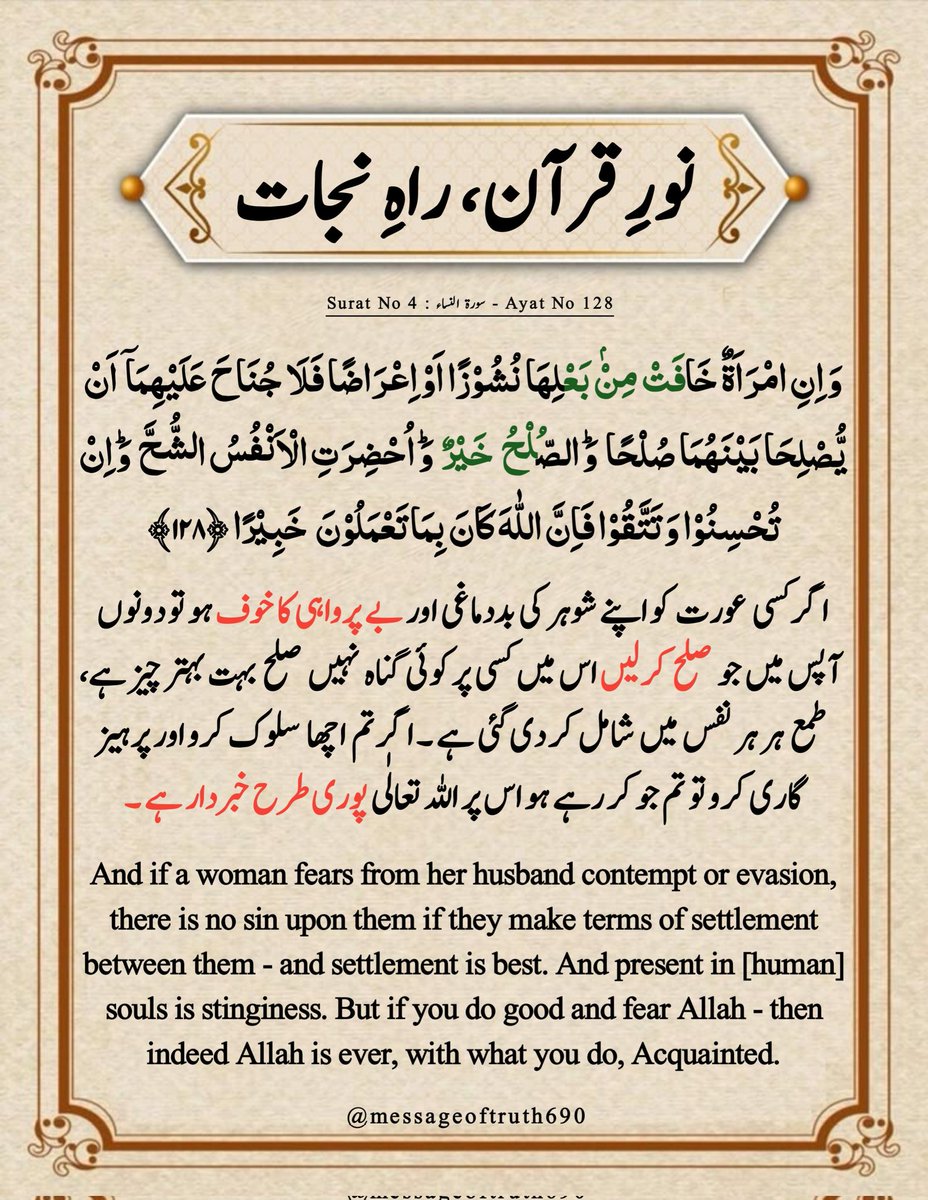 نورِ قرآن، راہِ نجات
Surat No 4 : سورۃ النساء - Ayat No 128
وَاِنِ امْرَاَةٌ خَافَتْ مِنْۢ بَعْلِهَا نُشُوْزًا اَوْ اِعْرَاضًا فَلَا جُنَاحَ عَلَيْهِمَاۤ اَنْ
يُّصْلِحَا بَيْنَهُمَا صُلْحًا ؕ وَالصُّلْحُ خَيْرٌ ؕ وَاُحْضِرَتِ الْاَنْفُسُ الشُّحَّ ؕ وَاِنْ
تُحْسِنُوْا وَتَتَّقُوْا فَاِنَّ اللّٰهَ كَانَ بِمَا تَعْمَلُوْنَ خَبِيْرًا ﴿۱۲۸﴾
اگر کسی عورت کو اپنے شوہر کی بددماغی اور بے پرواہی کا خوف ہو تو دونوں
آپس میں جو صلح کر لیں اس میں کسی پر کوئی گناہ نہیں صلح بہت بہتر چیز ہے،
طمع ہر ہر نفس میں شامل کر دی گئی ہے۔ اگر تم اچھا سلوک کرو اور پرہیز
گاری کرو تو تم جو کر رہے ہو اس پر اللہ تعالٰی پوری طرح خبردار ہے۔
And if a woman fears from her husband contempt or evasion,
there is no sin upon them if they make terms of settlement
between them - and settlement is best. And present in [human]
souls is stinginess. But if you do good and fear Allah - then
indeed Allah is ever, with what you do, Acquainted.
@messageoftruth690
@messageoftruth690